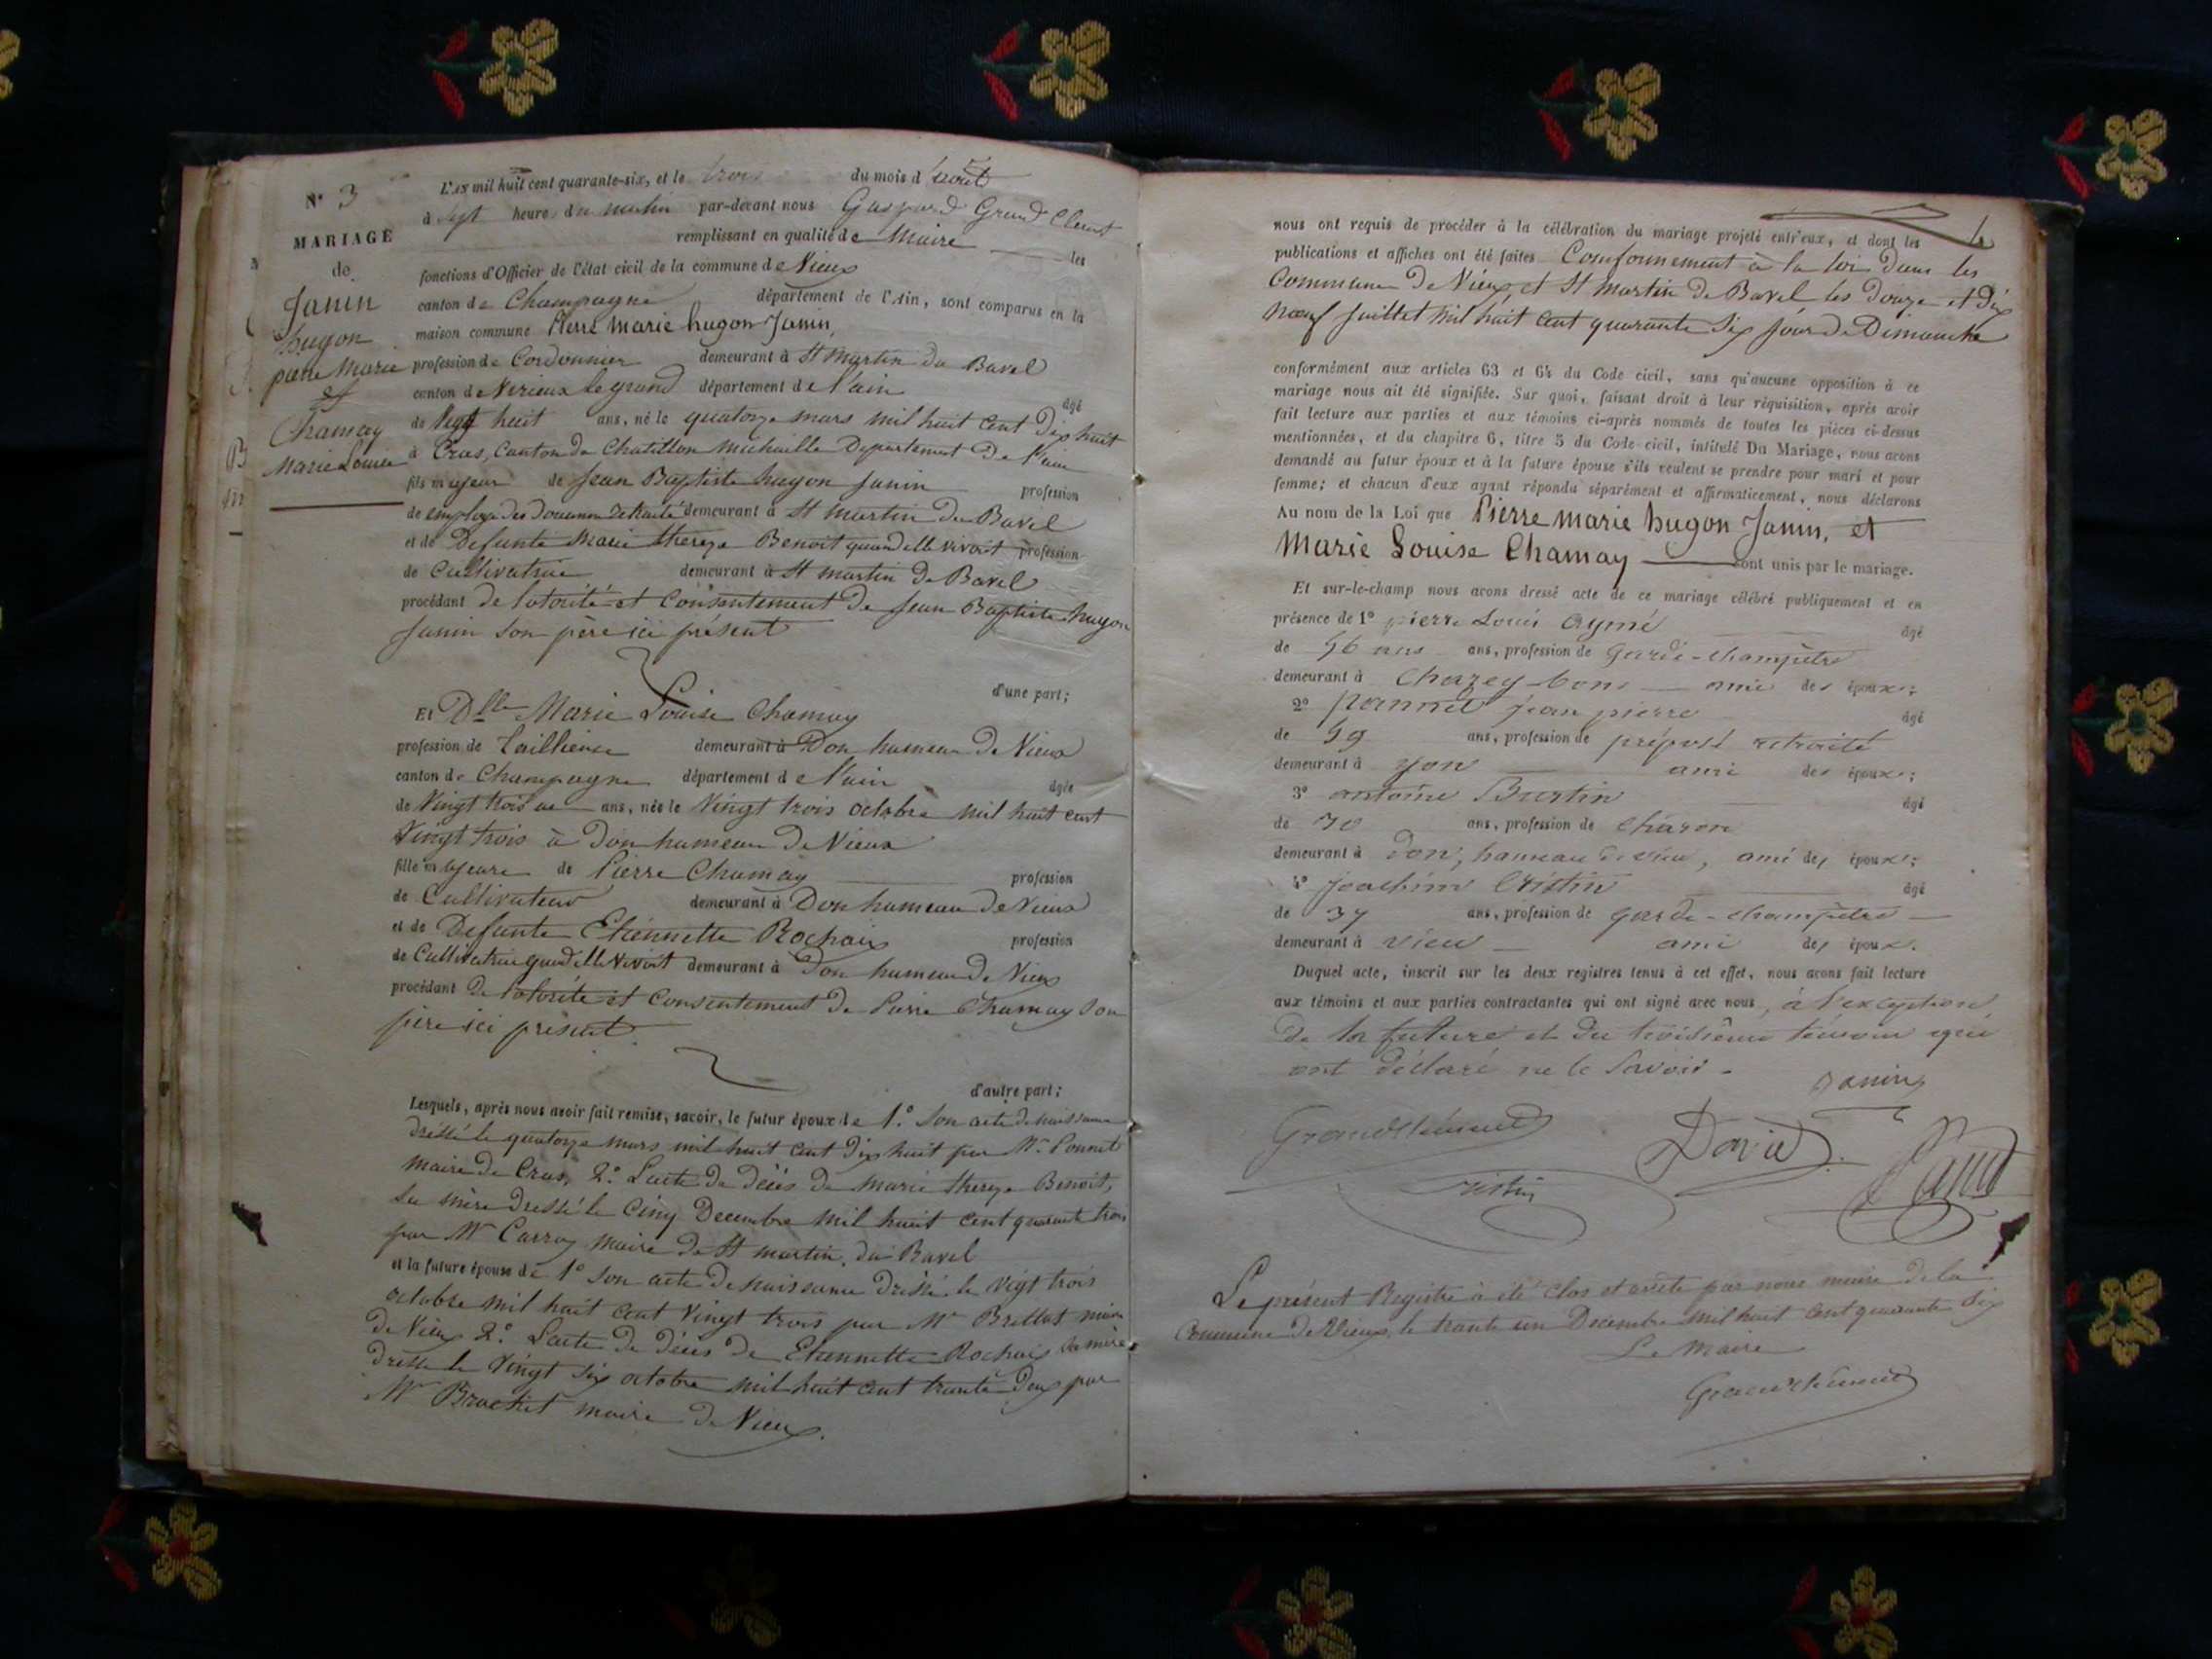 N° 3
MARIAGE
de
Janin
hugon
pierre Marie
et
Chamay
Marie Louise
L'AN mil huit cent quarante-six, et le trois du mois d'août
à sept heures du matin par-devant nous Gaspard Grand Clement
remplissant en qualité de Maire les
fonctions d'Officier de l'état civil de la commune de Vieux
canton de Champagne département de l'Ain, sont comparus en la
maison commune Pierre Marie hugon Janin,
profession de Cordonnier demeurant à St Martin du Bavel
canton de Virieux le grand département de l'ain
âgé
de Vingt huit ans, né le quatorze mars mil huit Cent Dix huit
à Cras, Canton de Chatillon Michaille Département De l'ain
fils majeur de Jean Baptiste hugon Janin profession
de employé des Douanne retraité demeurant à St Martin Du Bavel
et de Defunte Marie thereze Benoit quand elle vivoit profession
de Cultivatrice demeurant à St martin De Bavel
procédant de lotorité et Consentement De Jean Baptiste hugon
Janin Son père ici présent
d'une part;
Et Dlle Marie Louise Chamay
profession de Taillieuse demeurant à Don hameau De Vieux
canton de Champagne département de l'ain
âgée
de Vingt trois ans, née le Vingt trois octobre mil huit cent
Vingt trois à Don hameau De Vieux
fille majeure de Pierre Chamay profession
de Cultivateur demeurant à Don hameau De Vieux
et de Defunte Etiennette Rochaix profession
de Cultivatrice quand elle vivoit demeurant à Don hameau De Vieux
procédant De lotorité et Consentement De Pierre Chamay Son
père ici présent
d'autre part;
Lesquels, après nous avoir fait remise, savoir, le futur époux de 1° Son acte de naissance
dréssé le quatorze mars mil huit cent Dix huit par Mr Ponnet
Maire de Cras, 2° L'acte De décès de Marie thereze Benoit,
Sa mère Dressé le Cinq Decembre Mil huit cent quarante trois
par Mr Carray Maire de St martin du Bavel
et la future épouse de 1° Son acte De naissance Dréssé le Vigt trois
octobre mil huit cent Vingt trois par Mr Brillat maire
de Vieux 2° L'acte De décès De Etiennette Rochaix Sa mère
Dressé le Vingt Six octobre mil huit cent trante Deux par
Mr Brachet maire De Vieux.
nous ont requis de procéder à la célébration du mariage projeté entr'eux, et dont les
publications et affiches ont été faites Conformement à la loi Dans les
Commune De Vieux et St Martin De Bavel les Douze et Dix
Neuf Juillet mil huit cent quarante Six Jour de Dimanche
conformément aux articles 63 et 64 du Code civil, sans qu'aucune opposition à ce
mariage nous ait été signifiée. Sur quoi, faisant droit à leur réquisition, après avoir
fait lecture aux parties et aux témoins ci-après nommés de toutes les pièces ci-dessus
mentionnées, et du chapitre 6, titre 5 du Code civil, intitulé Du Mariage, nous avons
demandé au futur époux et à la future épouse s'ils veulent se prendre pour mari et pour
femme; et chacun d'eux ayant répondu séparément et affirmativement, nous déclarons
Au nom de la Loi que Pierre marie hugon Janin, et
Marie Louise Chamay sont unis par le mariage.
Et sur-le-champ nous avons dressé acte de ce mariage célébré publiquement et en
présence de 1° pierre Louis Aymé âgé
de 56 ans ans, profession de garde-champêtre
demeurant à Chazey-bons ami des époux;
2° jean pierre âgé
de 59 ans, profession de préposé retraité
demeurant à yon ami des époux;
3° antoine Burtin âgé
de 70 ans, profession de Charon
demeurant à Don, hameau de vieu, ami des époux;
4° Joachim Cristin âgé
de 37 ans, profession de garde-champêtre
demeurant à Vieu ami des époux.
Duquel acte, inscrit sur les deux registres tenus à cet effet, nous avons fait lecture
aux témoins et aux parties contractantes qui ont signé avec nous, à l'exception
de la future et du troisième témoin qui
ont déclaré ne le Savoir.
Janin
Grandclément
David
Le présent Registre à été clos et arrêté par nous maire de la
Commune De Vieux, le trante un Decembre mil huit cent quarante Six
Le Maire
Grandclément